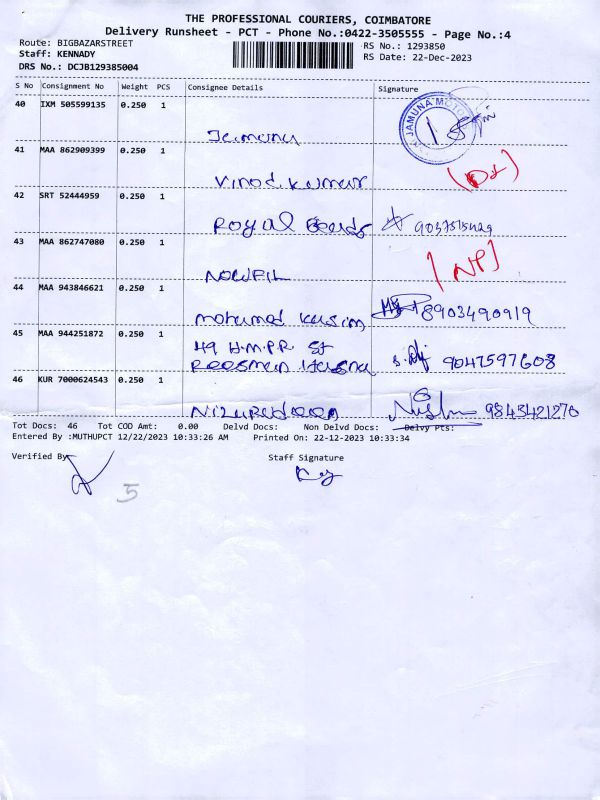 THE PROFESSIONAL COURIERS, COIMBATORE
Delivery Runsheet - PCT - Phone No.:0422-3505555 - Page No.:4
Route: BIGBAZARSTREET RS No.: 1293850
Staff: KENNADY RS Date: 22-Dec-2023
DRS No.: DCJB129385004
S No Consignment No Weight PCS Consignee Details Signature
40 IXM 505599135 0.250 1
JAMUNA MOTOR
Jamuna
41 MAA 862909399 0.250 1
Vinod Kumar
42 SRT 52444959 0.250 1
Royal
43 MAA 862747080 0.250 1
(NP)
NOWFIL
44 MAA 943846621 0.250 1
mohamed Kasim 8903490919
45 MAA 944251872 0.250 1
49 H.M.P.R St
9047597608
46 KUR 7000624543 0.250 1
9843421270
Tot Docs: 46 Tot COD Amt: 0.00 Delvd Docs: Non Delvd Docs: Delvy Pts:
Entered By :MUTHUPCT 12/22/2023 10:33:26 AM Printed On: 22-12-2023 10:33:34
Verified By Staff Signature
5